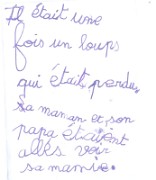 Il était une
fois un loups
qui était perdu,
sa maman et son
papa étaitent
allés voir
sa mamie.